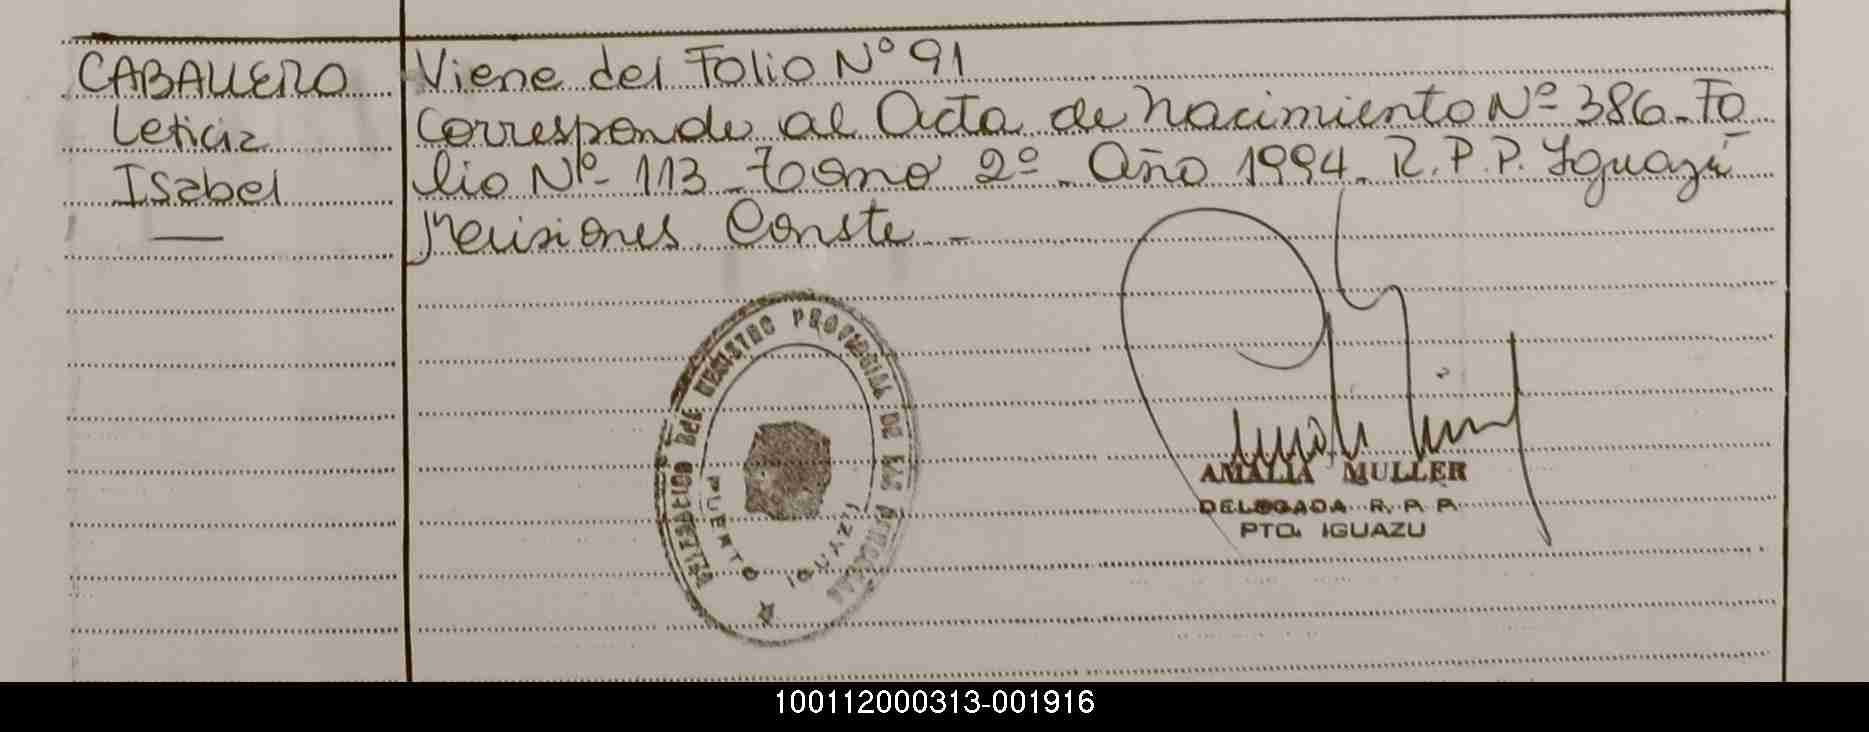 CABALLERO
Leticia
Isabel
Viene del Folio Nº 91
Corresponde al Acta de Nacimiento Nº 386_Fo
lio Nº 113_Tomo 2º_Año 1994_R.P.P. Iguazú
Misiones Conste_
DELEGACION DEL REGISTRO PROVINCIAL DE LAS PERSONAS
PUERTO IGUAZU
AMALIA MULLER
DELEGADA R. P. P.
PTO. IGUAZU
100112000313-001916